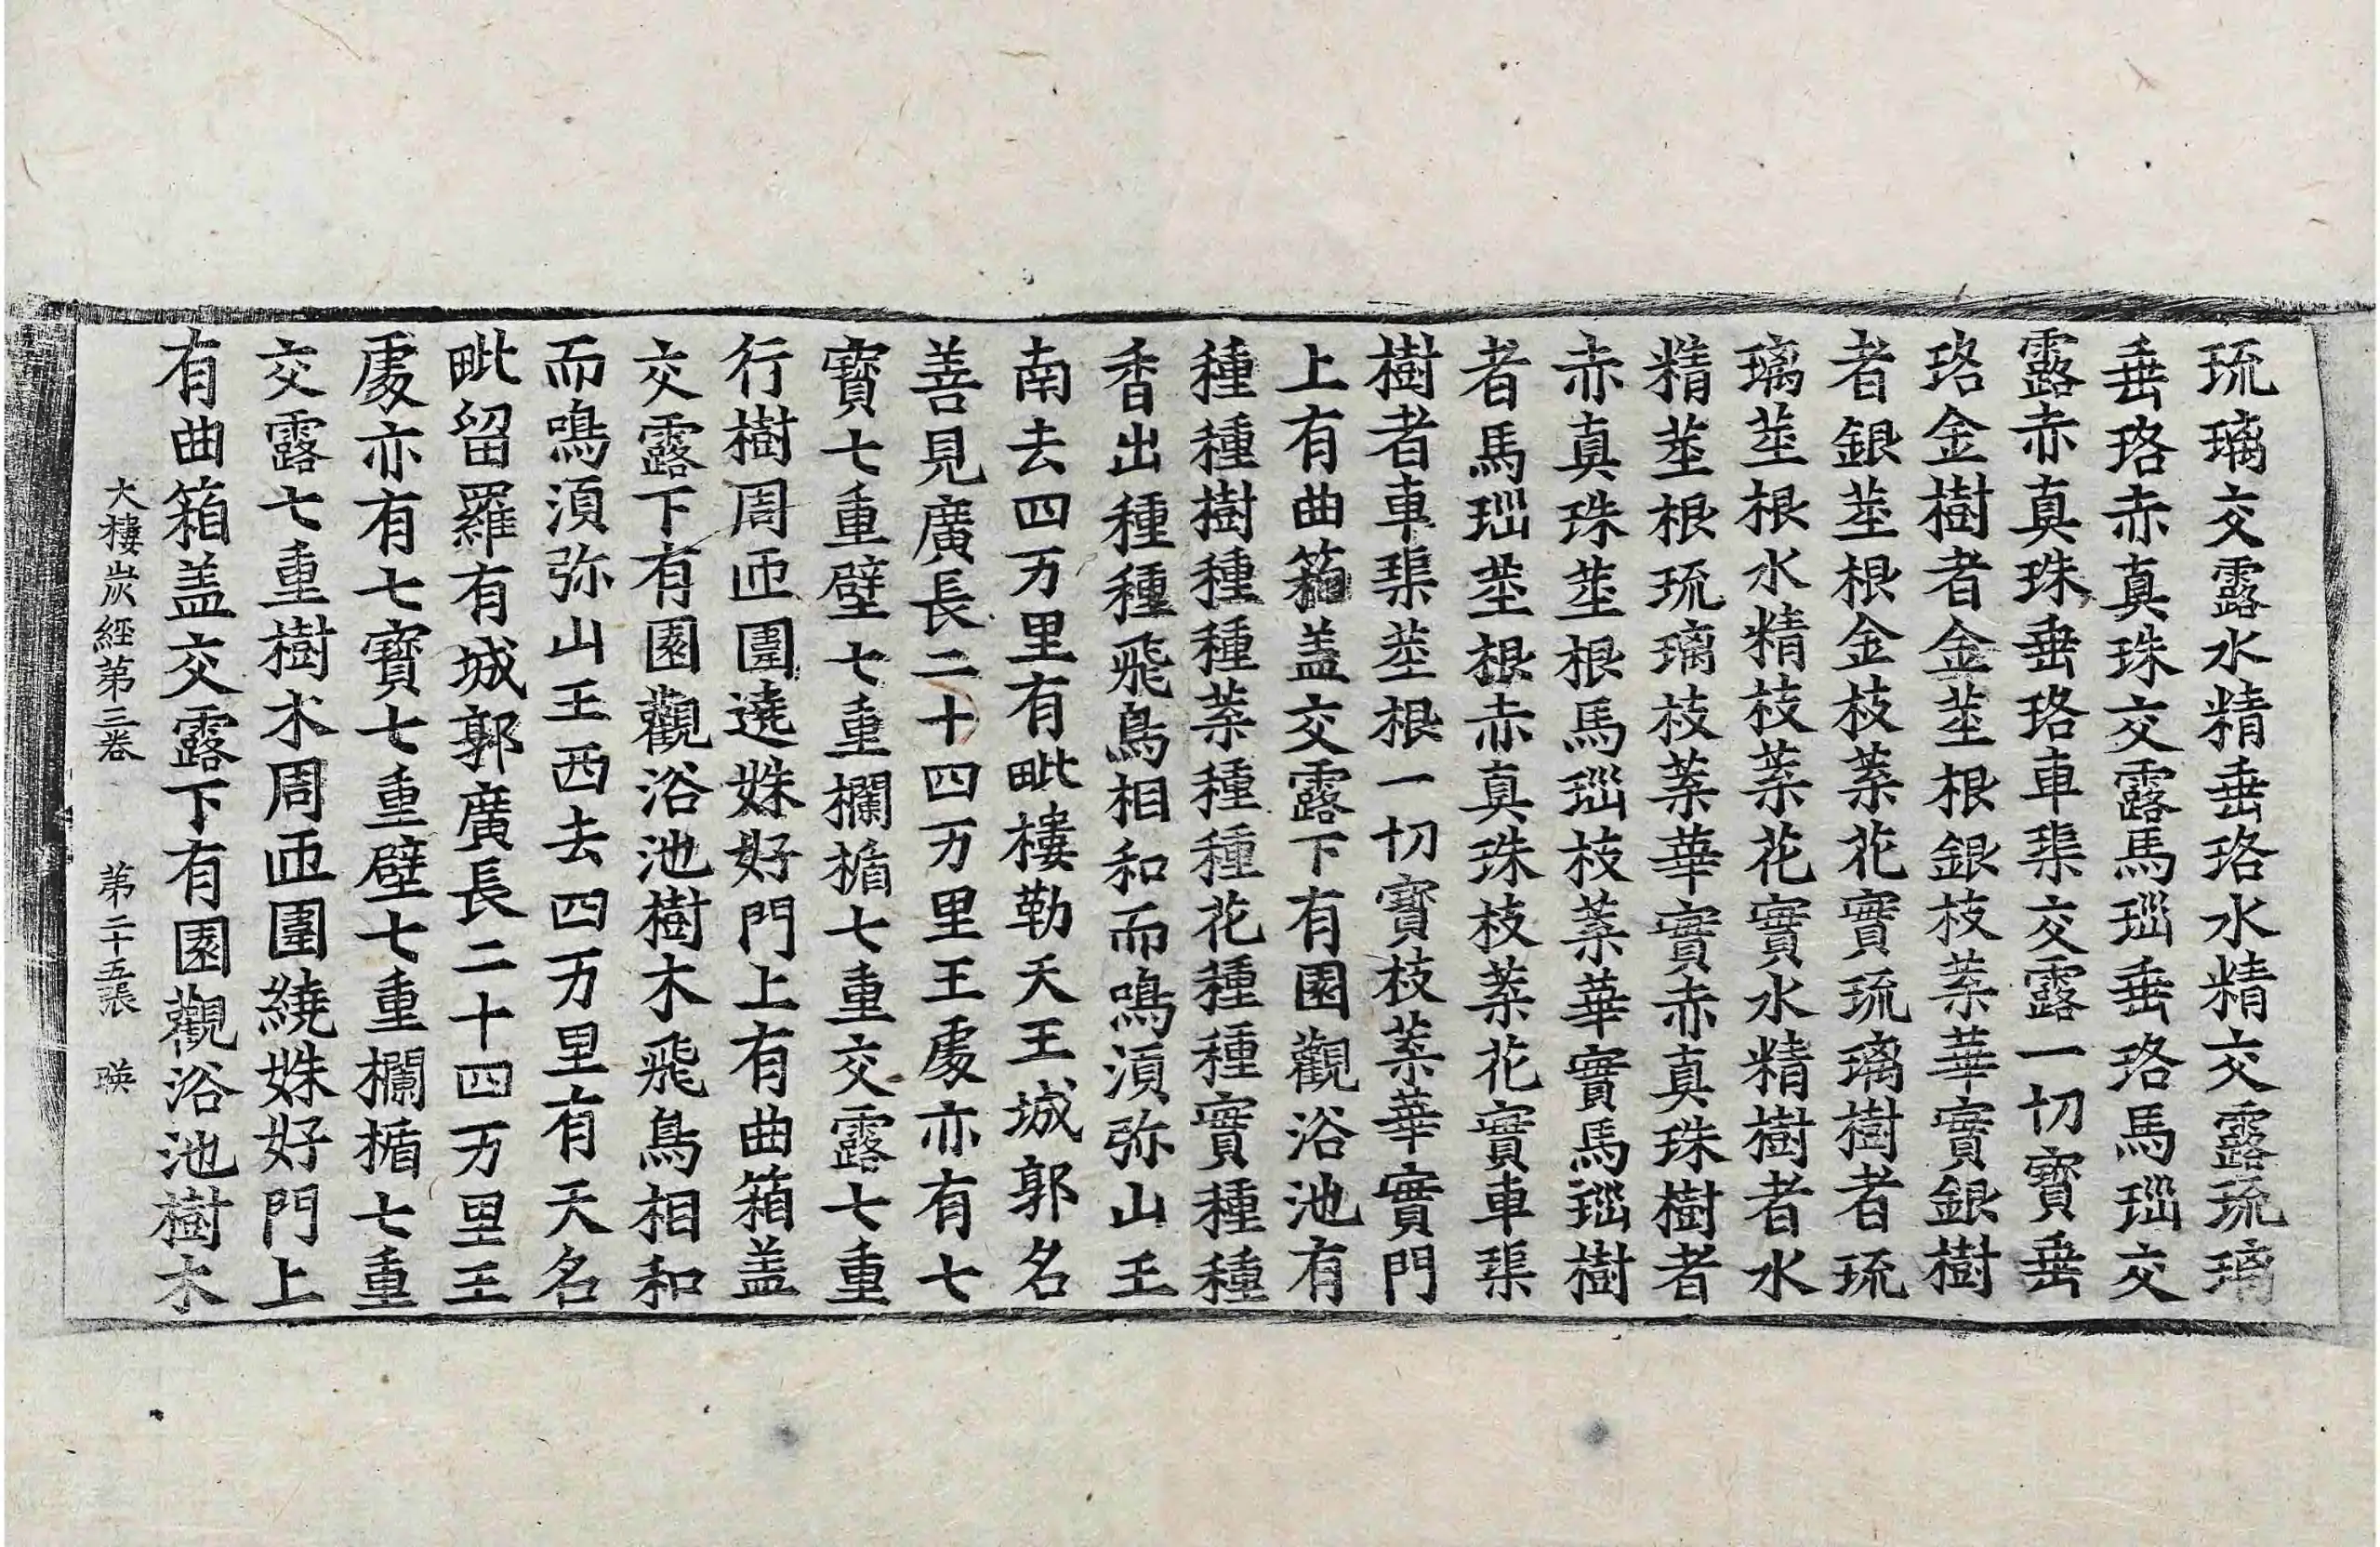 琉璃交露水精垂珞水精交露琉璃
垂珞赤真珠交露馬瑙垂珞馬瑙交
露赤真珠垂珞車渠交露一切寶垂
珞金樹者金莖根銀枝葉華實銀樹
者銀莖根金枝葉花實琉璃樹者琉
璃莖根水精枝葉花實水精樹者水
精莖根琉璃枝葉華實赤真珠樹者
赤真珠莖根馬瑙枝葉華實馬瑙樹
者馬瑙莖根赤真珠枝葉花實車渠
樹者車渠莖根一切寶枝葉華實門
上有曲箱盖交露下有園觀浴池有
種種樹種種葉種種花種種實種種
香出種種飛鳥相和而鳴須弥山王
南去四万里有毗樓勒天王城郭名
善見廣長二十四万里王處亦有七
寶七重壁七重欄楯七重交露七重
行樹周匝圍遶姝好門上有曲箱盖
交露下有園觀浴池樹木飛鳥相和
而鳴須弥山王西去四万里有天名
毗留羅有城郭廣長二十四万里王
處亦有七寶七重壁七重欄楯七重
交露七重樹木周匝圍繞姝好門上
有曲箱盖交露下有園觀浴池樹木
大樓炭經第三卷 第二十五張 暎